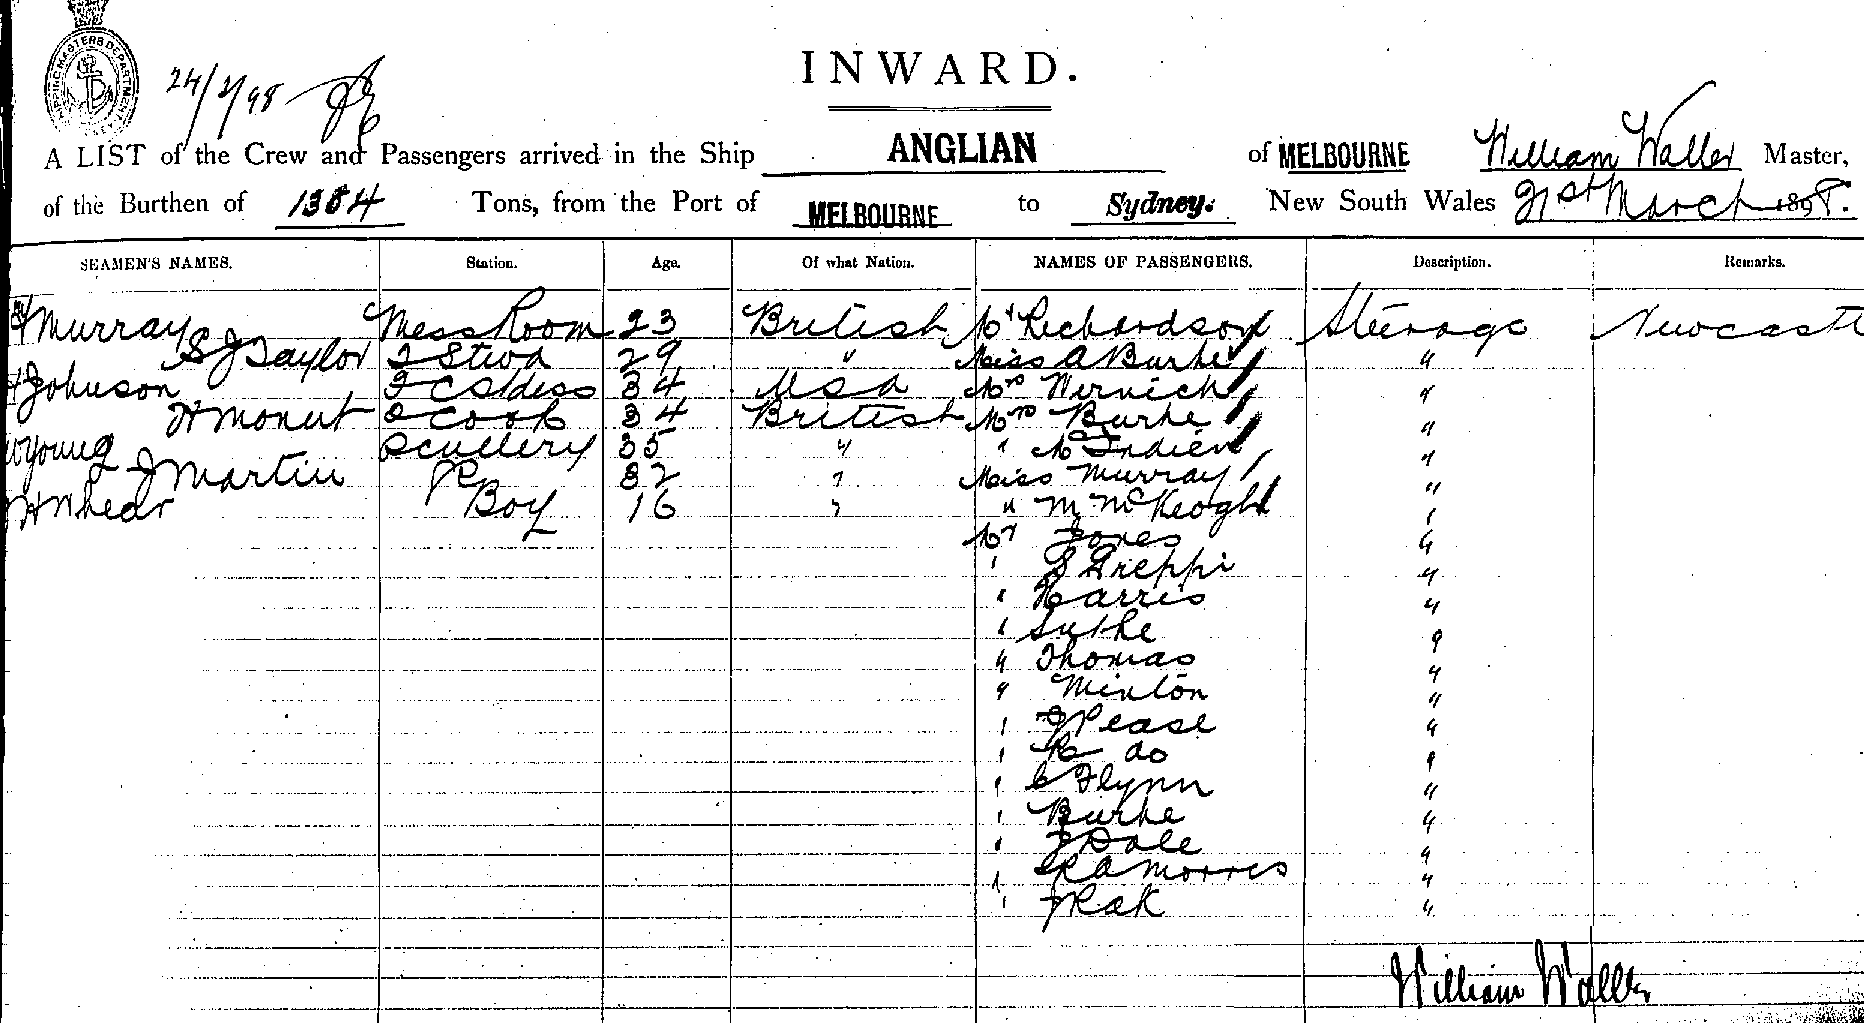 SHIPPING MASTERS DEPARTMENT
24/3/98
INWARD.
A LIST of the Crew and Passengers arrived in the Ship ANGLIAN of MELBOURNE William Waller Master,
of the Burthen of Tons, from the Port of MELBOURNE to Sydney. New South Wales 21st March 1898.
SEAMEN'S NAMES. Station. Age. Of what Nation. NAMES OF PASSENGERS. Description. Remarks.
Murray Mess Room 23 British Mr Richardson Steerage Newcastle
S J Taylor 29 " Miss A Burke "
Johnson 34 USA Mrs "
2 Cook 34 British Mrs Burke "
Young Scullery 35 " " "
J Martin 32 " Miss Murray "
Boy 16 " " M McKeogh "
Mr Jones "
" S Greppi "
" Harris "
" "
" Thomas "
" Minton "
" J Pease "
" do "
" C Flynn "
" Burke "
" J Dale "
" R A Morres "
" "
William Waller